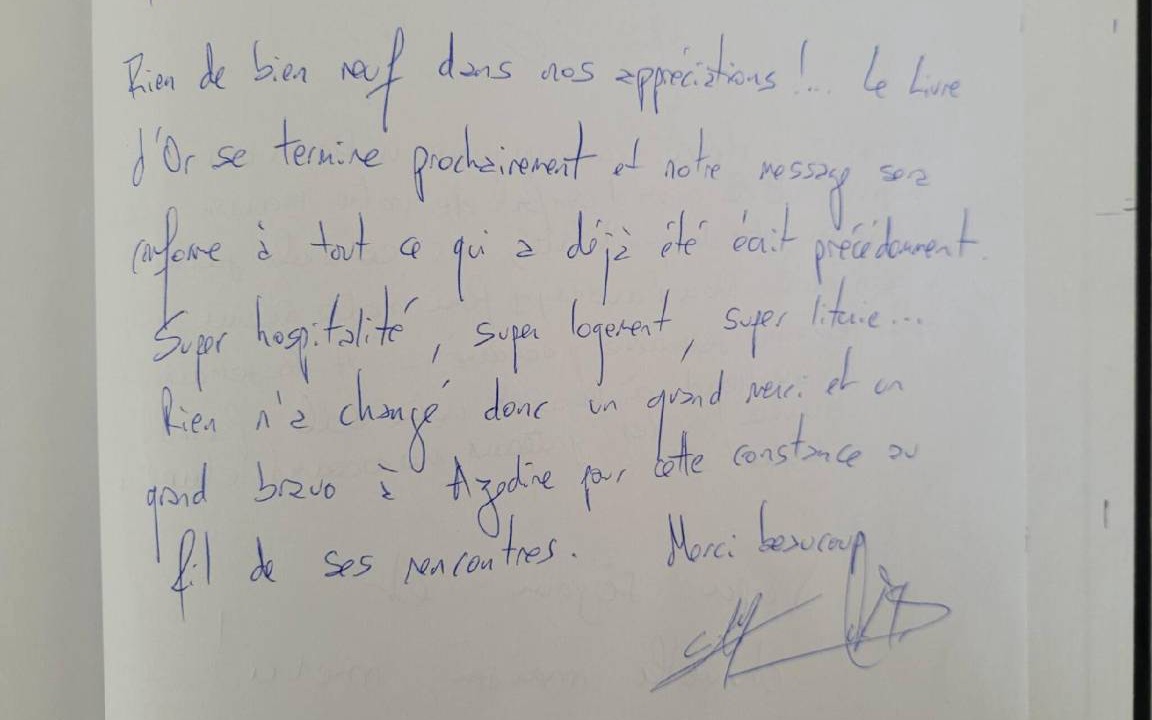 Rien de bien neuf dans nos appréciations !... Le Livre
d'Or se termine prochainement et notre message sera
conforme à tout ce qui a déjà été écrit précédemment.
Super hospitalité, super logement, super literie...
Rien n'a changé donc un grand merci et un
grand bravo à Azedine pour cette constance au
fil de ses rencontres. Merci beaucoup